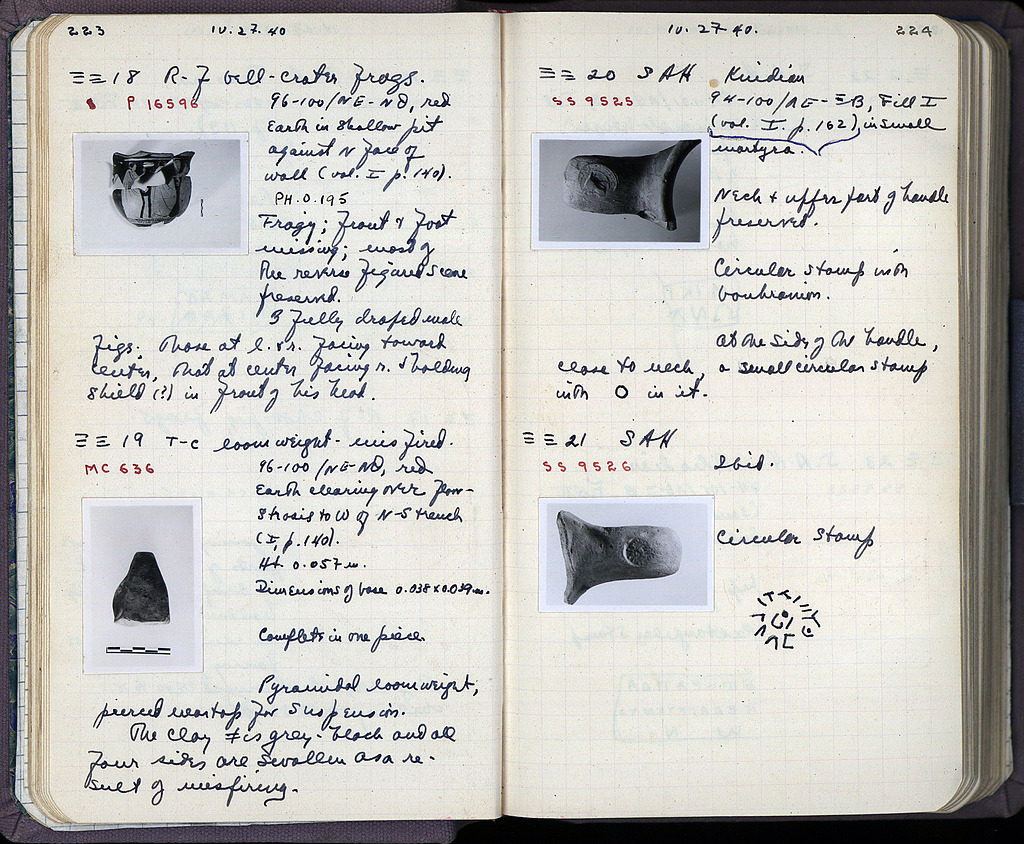 223
IV. 27. 40
ΞΞ 18 R-f bell-crater frags.
P 16596
96-100/ΝΕ-ΝΘ, red
Earth in shallow pit
against N face of
wall (vol. I p. 140).
PH. 0.195
Fragy; front & foot
missing; most of
the reverse figured scene
preserved.
3 fully draped male
figs. Those at l. & r. facing toward
center, that at center facing r. & holding
shield (?) in front of his head.
ΞΞ 19 T-C loomweight - misfired.
MC 636
96-100/ΝΕ-ΝΘ, red
Earth clearing over
Strosis to W of N-S trench
(I, p. 140).
Ht. 0.057 m.
Dimensions of base 0.038 x 0.039 m.
Complete in one piece
Pyramidal loomweight,
pierced near top for suspension.
The clay is grey-black and all
four sides are swollen as a re-
sult of misfiring.
IV. 27 40.
224
ΞΞ 20 SAH Knidian
SS 9525
94-100/ΛΕ-ΞΒ, Fill I
(vol. I. p. 162), in small
martyra.
Neck + upper part of handle
preserved.
Circular stamp with
boukranion.
At the side of the handle,
close to neck, a small circular stamp
with O in it.
ΞΞ 21 SAH
SS 9526
Ibid.
Circular stamp